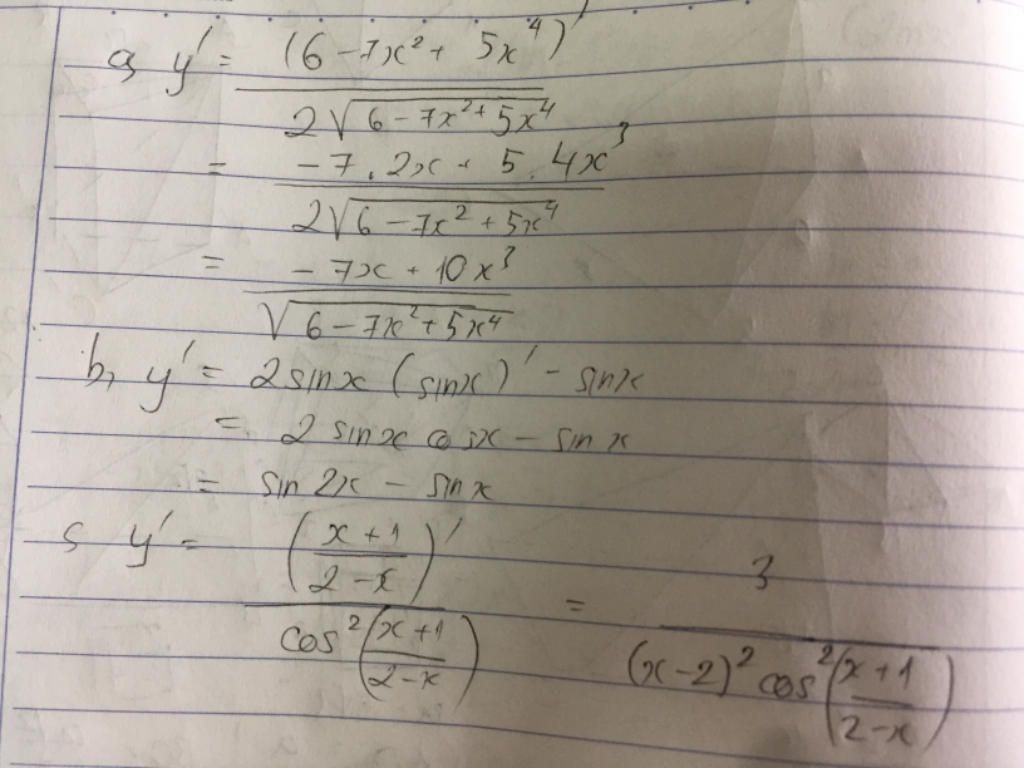 a, y' = (6 - 7x² + 5x⁴)' / 2√(6 - 7x² + 5x⁴)
= (-7.2x + 5.4x³) / 2√(6 - 7x² + 5x⁴)
= (-7x + 10x³) / √(6 - 7x² + 5x⁴)
b, y' = 2 sinx (sinx)' - sinx
= 2 sinx cosx - sinx
= sin2x - sinx
c, y' = ((x+1)/(2-x))' / cos²((x+1)/(2-x)) = 3 / (x-2)² cos²((x+1)/(2-x))